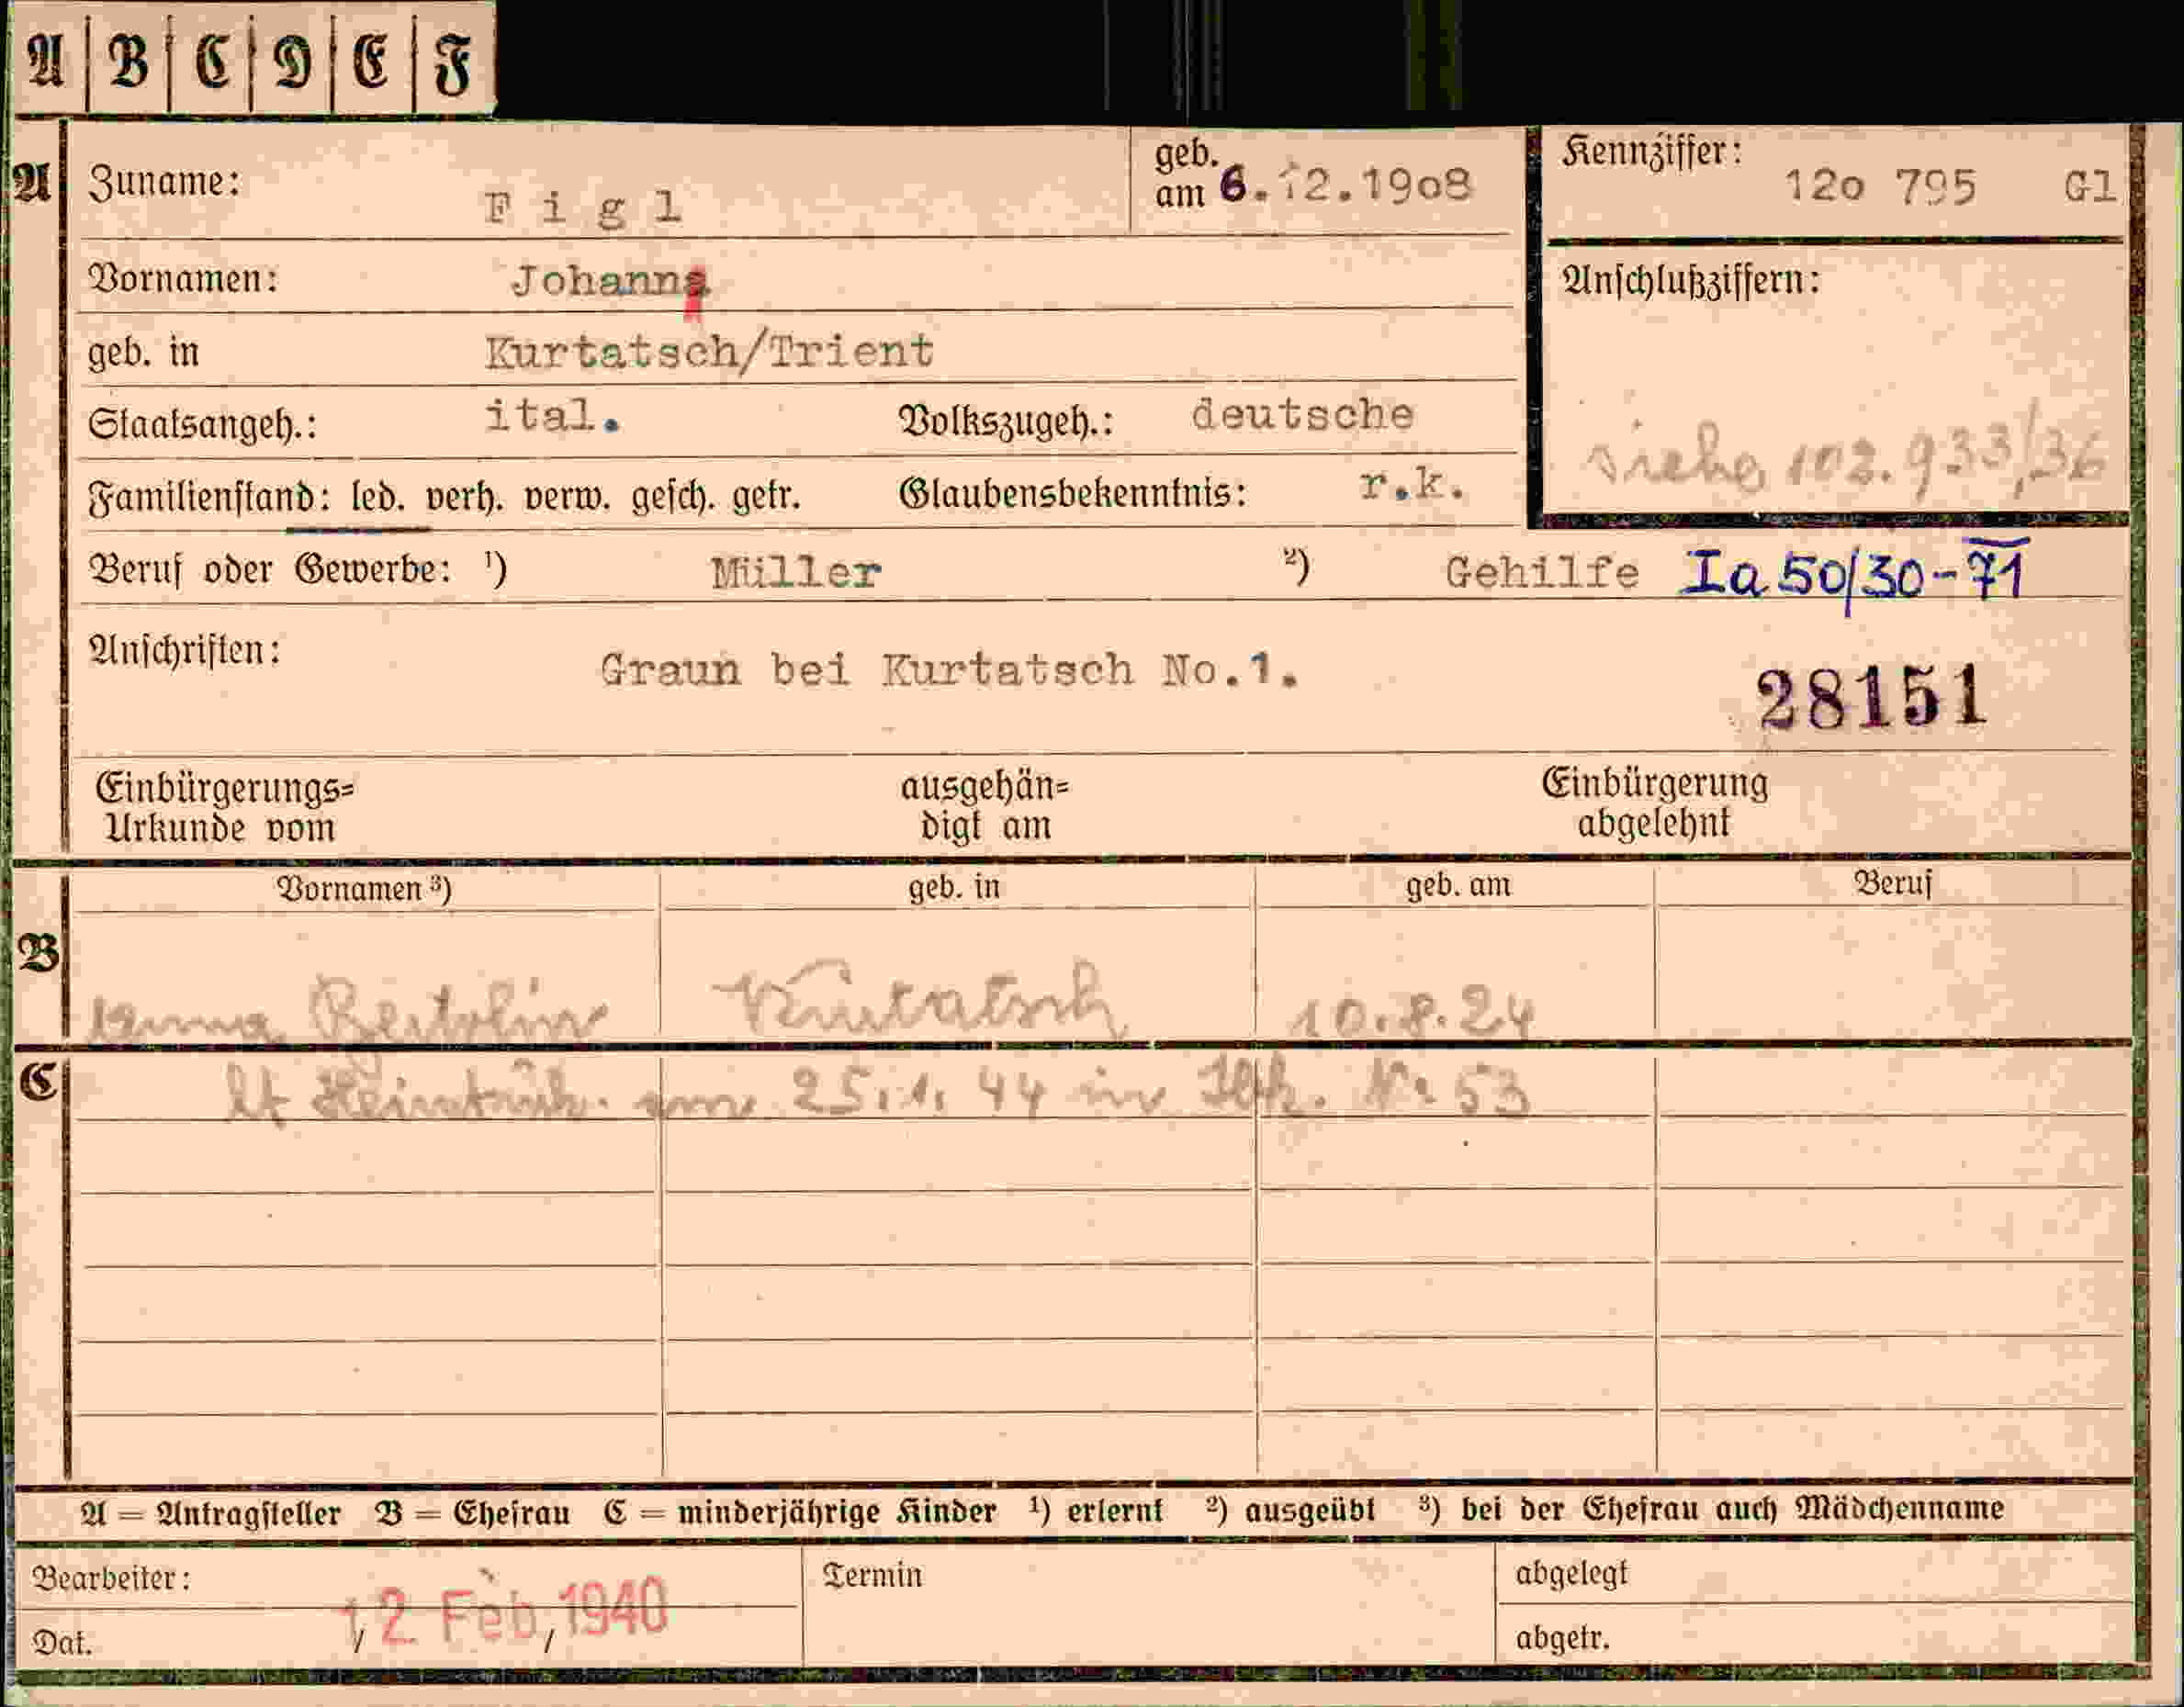 A B C D E F
A Zuname: Figl geb. am 6.12.1908 Kennziffer: 120 795 Gl
Vornamen: Johann
Anschlußziffern:
geb. in Kurtatsch/Trient
Staatsangeh.: ital. Volkszugeh.: deutsche
siehe 102.933/36
Familienstand: led. verh. verw. gesch. getr. Glaubensbekenntnis: r.k.
Beruf oder Gewerbe: ¹) Müller ²) Gehilfe Ia 50/30-71
Anschriften: Graun bei Kurtatsch No.1.
28151
Einbürgerungs= ausgehän= Einbürgerung
Urkunde vom digt am abgelehnt
Vornamen ³) geb. in geb. am Beruf
B
Kurtatsch 10.8.24
C lt am 25.1.44 in Nr 53
A = Antragsteller B = Ehefrau C = minderjährige Kinder ¹) erlernt ²) ausgeübt ³) bei der Ehefrau auch Mädchenname
Bearbeiter: Termin abgelegt
12 Feb 1940
Dat. / / abgetr.